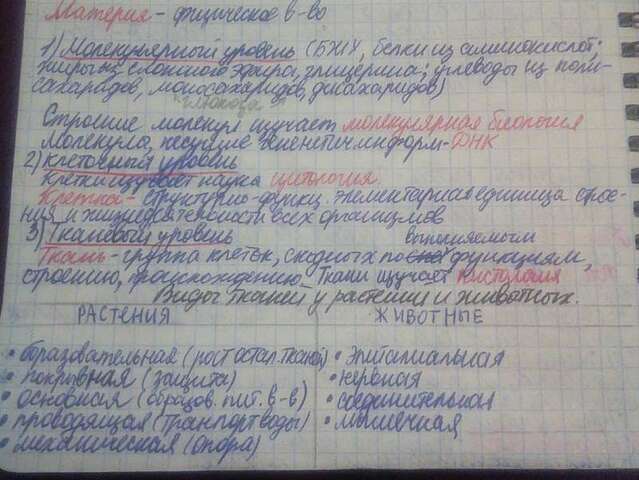 Материя - физическое в-во
1) Молекулярный уровень (БЖУ, белки из аминокислот;
жиры из сложного эфира, глицерина; углеводы из поли-
сахаридов, моносахаридов, дисахаридов)
глюкоза
Строение молекул изучает молекулярная биология
Молекула, несущие генетич. информ - ДНК
2) Клеточный уровень
Клетки изучает наука цитология
Клетка - структурно-функц. элементарная единица строе-
ния и жизнедеятельности всех организмов
3) Тканевый уровень
выполняемым
Ткань - группа клеток, сходных по функциям,
строению, происхождению - Ткани изучает гистология
Виды тканей у растений и животных.
РАСТЕНИЯ ЖИВОТНЫЕ
• образовательная (рост остал. тканей) • эпителиальная
• покровная (защита) • нервная
• основная (образов. пит. в-в) • соединительная
• проводящая (транспорт воды) • мышечная
• механическая (опора)